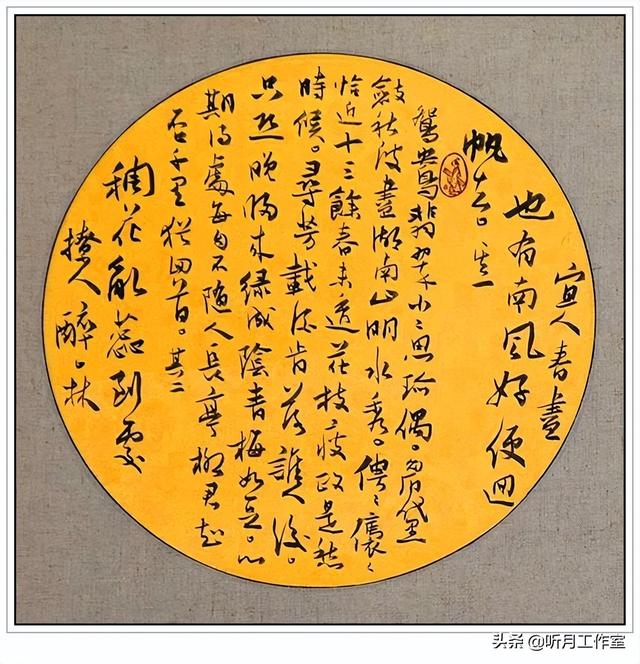 宜人春晝
也有南風好便迴
帆去。其一
鴛鴦翡翠小小思珍偶。眉黛
斂秋波盡湖南山明水秀。俜俜褭褭
恰近十三餘春未透花枝瘦政是愁
時候。尋芳載酒肯落誰人後。
只恐晚歸來綠成陰青梅如豆。心
期得處每自不隨人長亭柳君知
否千里猶回首。其二
稠花亂蕊到處
撩人醉。林
头条 @听月工作室